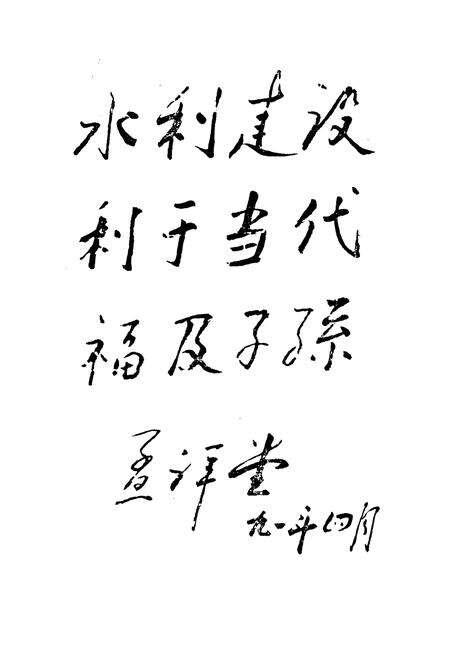 水利建设
利于当代
福及子孫
孟祥堂
九一年四月